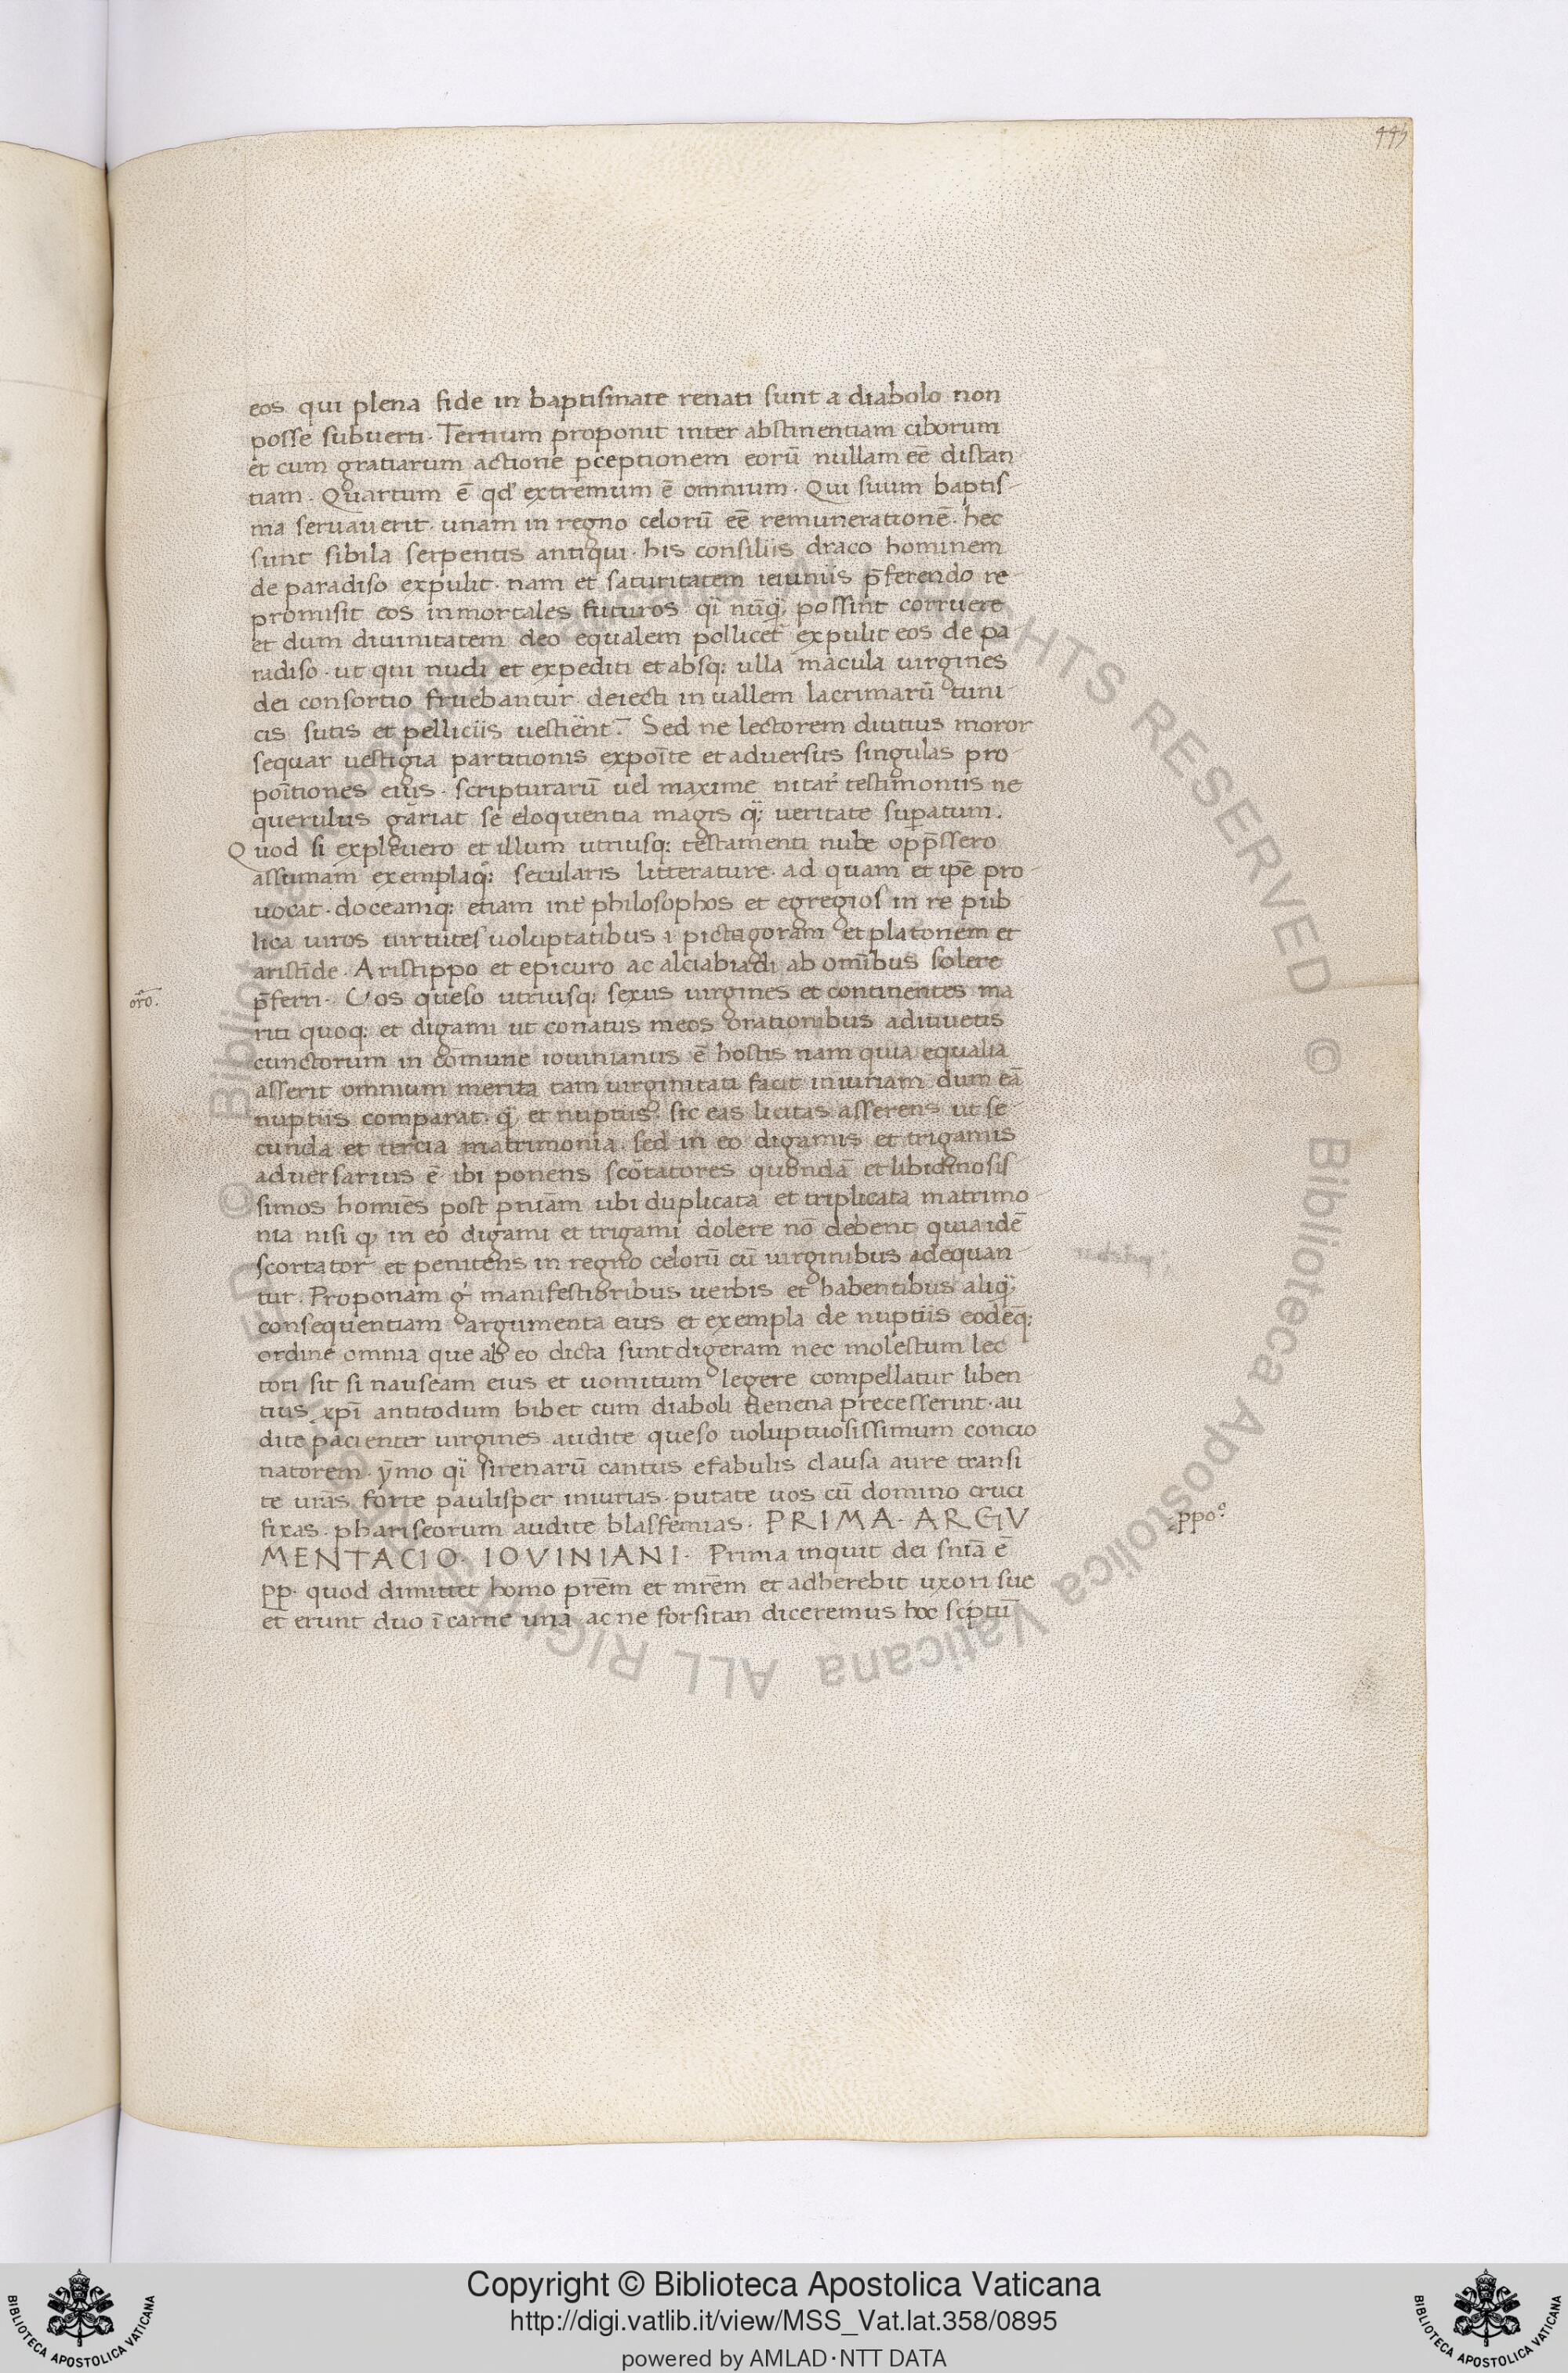 445
eos qui plena fide in baptismate renati sunt a diabolo non
posse subuerti. Tertium proponit inter abstinentiam ciborum
et cum gratiarum actione p̱ceptionem eorū nullam eē distan
tiam. Quartum ē qđ extremum ē omnium. Qui suum baptis-
ma seruauerit. unam in regno celorū eē remunerationē. hec
sunt sibila serpentis antiqui. his consiliis draco hominem
de paradiso expulit. nam et saturitatem ieiuniis p̄ferendo re-
promisit eos inmortales futuros qi nūq̃ possint corruere
et dum diuinitatem deo equalem pollicet expulit eos de pa
radiso. ut qui nudi et expediti et absq; ulla macula uirgines
dei consortio fruebantur. deiecti in uallem lacrimarū tuni-
cis sutis et pelliciis uestient. Sed ne lectorem diutius moror
sequar uestigia partitionis expoīte et aduersus singulas pro-
poītiones eius. scripturarū uel maxime nitar testimoniis ne
querulus gariat se eloquentia magis q̃; ueritate sup̱atum.
Quod si expleuero et illum utriusq; testamenti nube opp̄ssero
assumam exemplaq; secularis litterature. ad quam et ip̄e pro-
uocat. doceamq; etiam int philosophos et egregios in re pub
lica uiros uirtutes uoluptatibus i pictagoram et platonem et
aristide. Aristippo et epicuro ac alciabiadi ab omībus solere
orō.
p̄ferri. Vos queso utriusq; sexus uirgines et continentes ma
riti quoq; et digami ut conatus meos orationibus adiuuetis
cunctorum in cōmune iouinianus ē hostis nam quia equalia
asserit omnium merita tam uirginitati facit iniuriam dum eā
nuptiis comparat. q̃ et nuptiis. sic eas licitas asserens ut se-
cunda et tercia matrimonia. sed in eo digamis et trigamis
aduersarius ē ibi ponens scortatores quondā et libidinosis
simos homiēs post pniām ubi duplicata et triplicata matrimo-
nia nisi q in eo digami et trigami dolere nō debent quia idē
scortator et penitens in regno celorū cū uirginibus adequan-
tur. Proponam g manifestioribus uerbis et habentibus aliq̃
consequentiam argumenta eius et exempla de nuptiis eodēq;
ordine omnia que ab eo dicta sunt digeram nec molestum lec
tori sit si nauseam eius et uomitum legere compellatur liben
tius xp̄i antitodum bibet cum diaboli uenena precesserint. au
dite pacienter uirgines audite queso uoluptuosissimum concio
natorem. ȳmo qi sirenarū cantus et fabulis clausa aure transi
te urās forte paulisper iniurias. putate uos cū domino cruci-
fixas. phariseorum audite blasfemias. PRIMA. ARGV
ppo°
MENTACIO. IOVINIANI. Prima inquit dei snīa ē
pp. quod dimittet homo prēm et mrēm et adherebit uxori sue
et erunt duo ī carne una ac ne forsitan diceremus hoc scptū
Copyright © Biblioteca Apostolica Vaticana
http://digi.vatlib.it/view/MSS_Vat.lat.358/0895
powered by AMLAD·NTT DATA
BIBLIOTECA APOSTOLICA VATICANA
BIBLIOTECA APOSTOLICA VATICANA
© Biblioteca Apostolica Vaticana ALL RIGHTS RESERVED